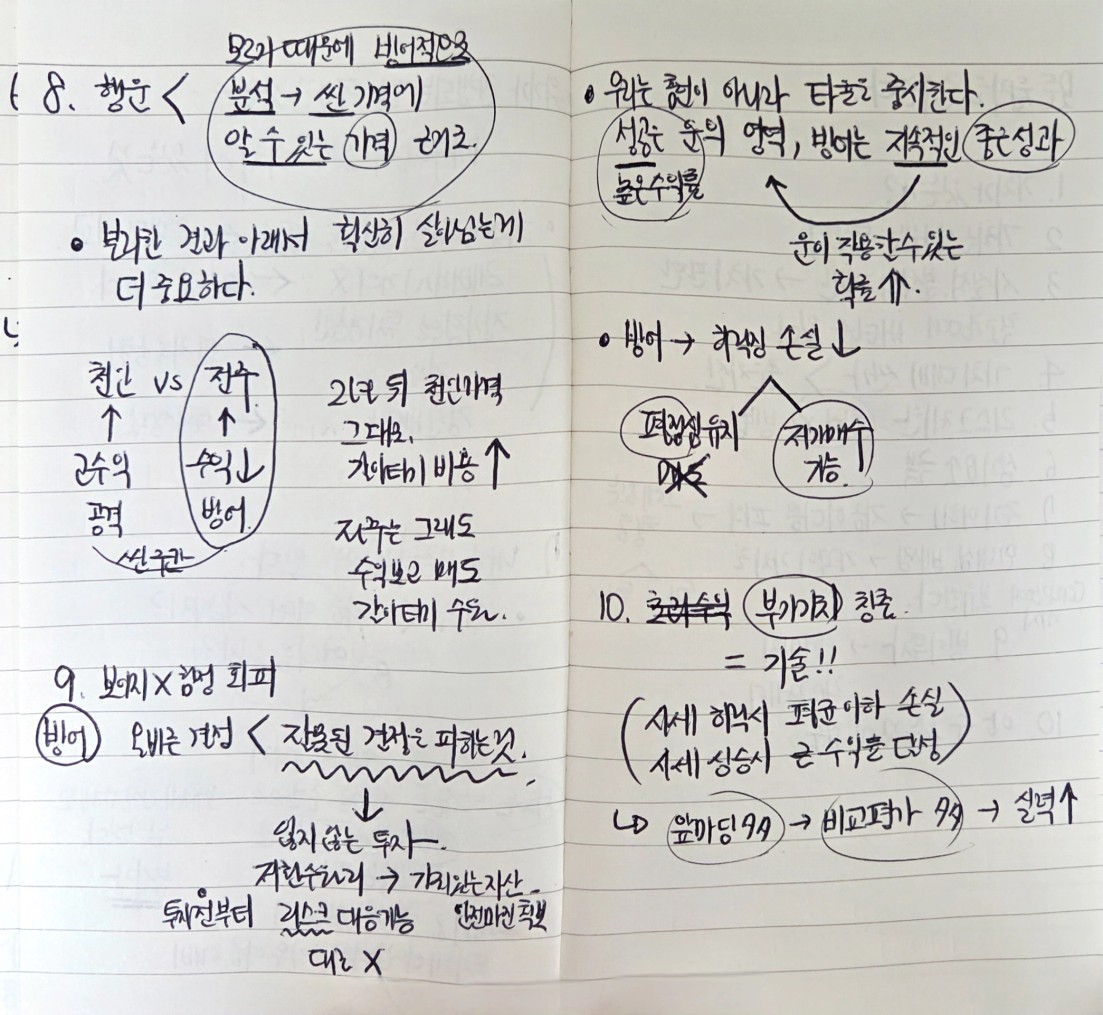 모르기 때문에 방어적으로
8. 행운 < 분석 → 싼 가격에
알 수 있는 가격 근거로.
• 불리한 결과 아래서 확실히 살아남는게
더 중요하다.
천안 vs 전주
↑ ↑
고수익 수익↓
공격 방어
싼구간
2년 뒤 천안가격
그대로.
갈아타기 비용 ↑
전주는 그래도
수익보고 매도
갈아타기 수월.
9. 보이지 X 함정 회피
방어 올바른 결정 < 잘못된 결정을 피하는것.
↓
잃지 않는 투자
저환수원리 → 가치있는자산
투자전부터 리스크 대응가능 안전마진 확보
대출 X
• 우리는 홈런이 아니라 타율을 중시한다.
성공은 운의 영역, 방어는 지속적인 좋은성과
높은수익률
운이 작용할 수 있는
확률 ⇑.
• 방어 → 하락장 손실 ↓
평정심 유지 저가매수
가능.
10. 초과수익 부가가치 창출.
= 기술!!
(시세 하락시 평균이하 손실
시세 상승시 큰 수익률 달성)
↳ 앞마당 → 비교평가 → 실력↑